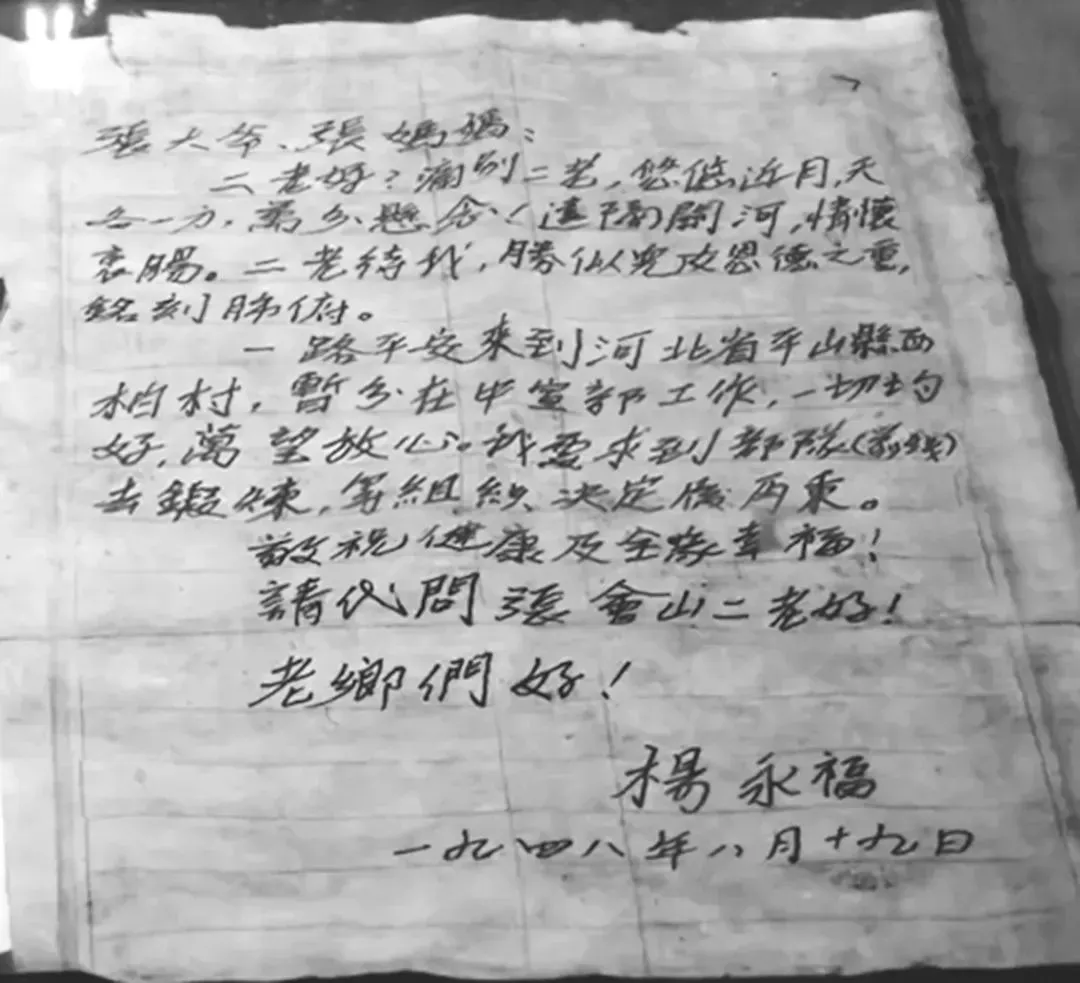 張大爷、張媽媽：
二老好？痛别二老，悠悠近月，天
各一方，萬分懸念！遠隔關河，情懷
衷腸。二老待我，勝似兒女恩德之重，
銘刻肺俯。
一路平安來到河北省平山縣西
柏村，暫分在中宣部工作，一切均
好，萬望放心。我要求到部隊（前线）
去鍛煉，等組織决定後再禀。
敬祝健康及全家幸福！
請代問張會山二老好！
老鄉們好！
楊永福
一九四八年八月十九日